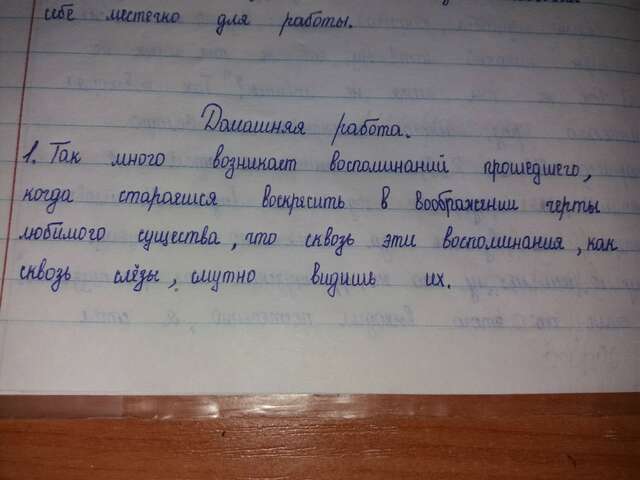 себе местечко для работы.
Домашняя работа.
1. Так много возникает воспоминаний прошедшего,
когда стараешся воскрясить в воображении черты
любимого существа, что сквозь эти воспоминания, как
сквозь слёзы, смутно видишь их.